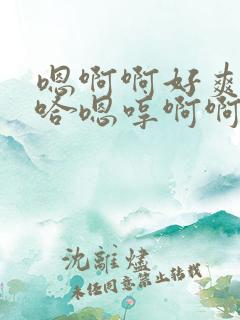 嗯啊啊好爽
哈嗯哼啊啊
沈離燼
未经同意禁止转载